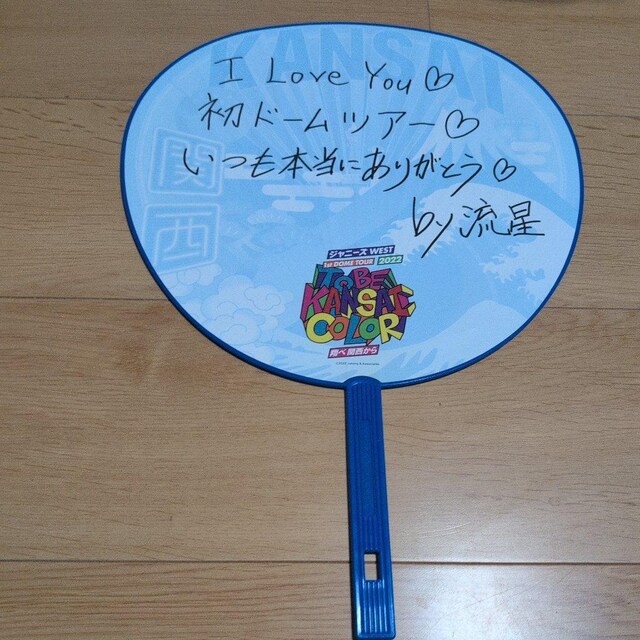 KANSAI
I Love You♡
初ドームツアー♡
いつも本当にありがとう♡
by 流星
関西
ジャニーズWEST
1st DOME TOUR 2022
TO BE
KANSAI
COLOR
翔べ関西から